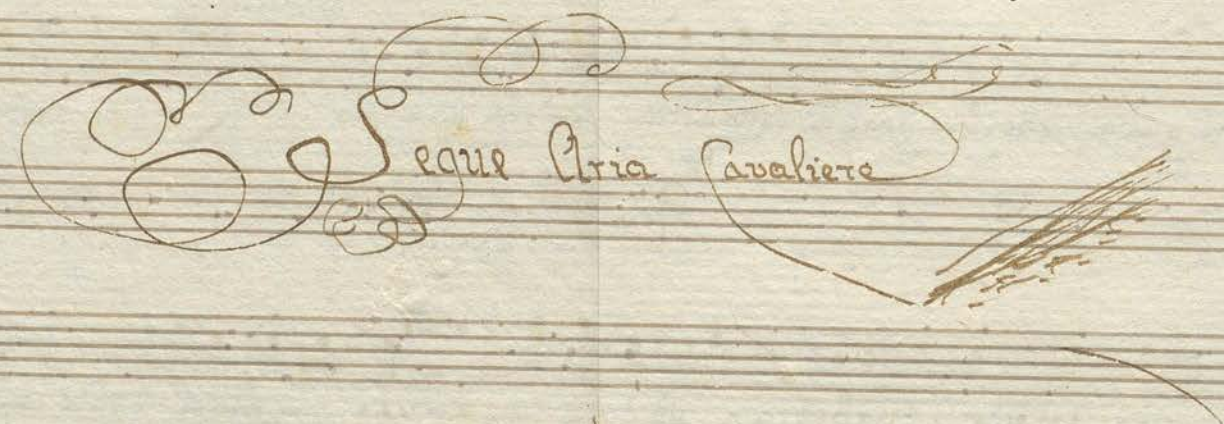 Segue Aria Cavaliere